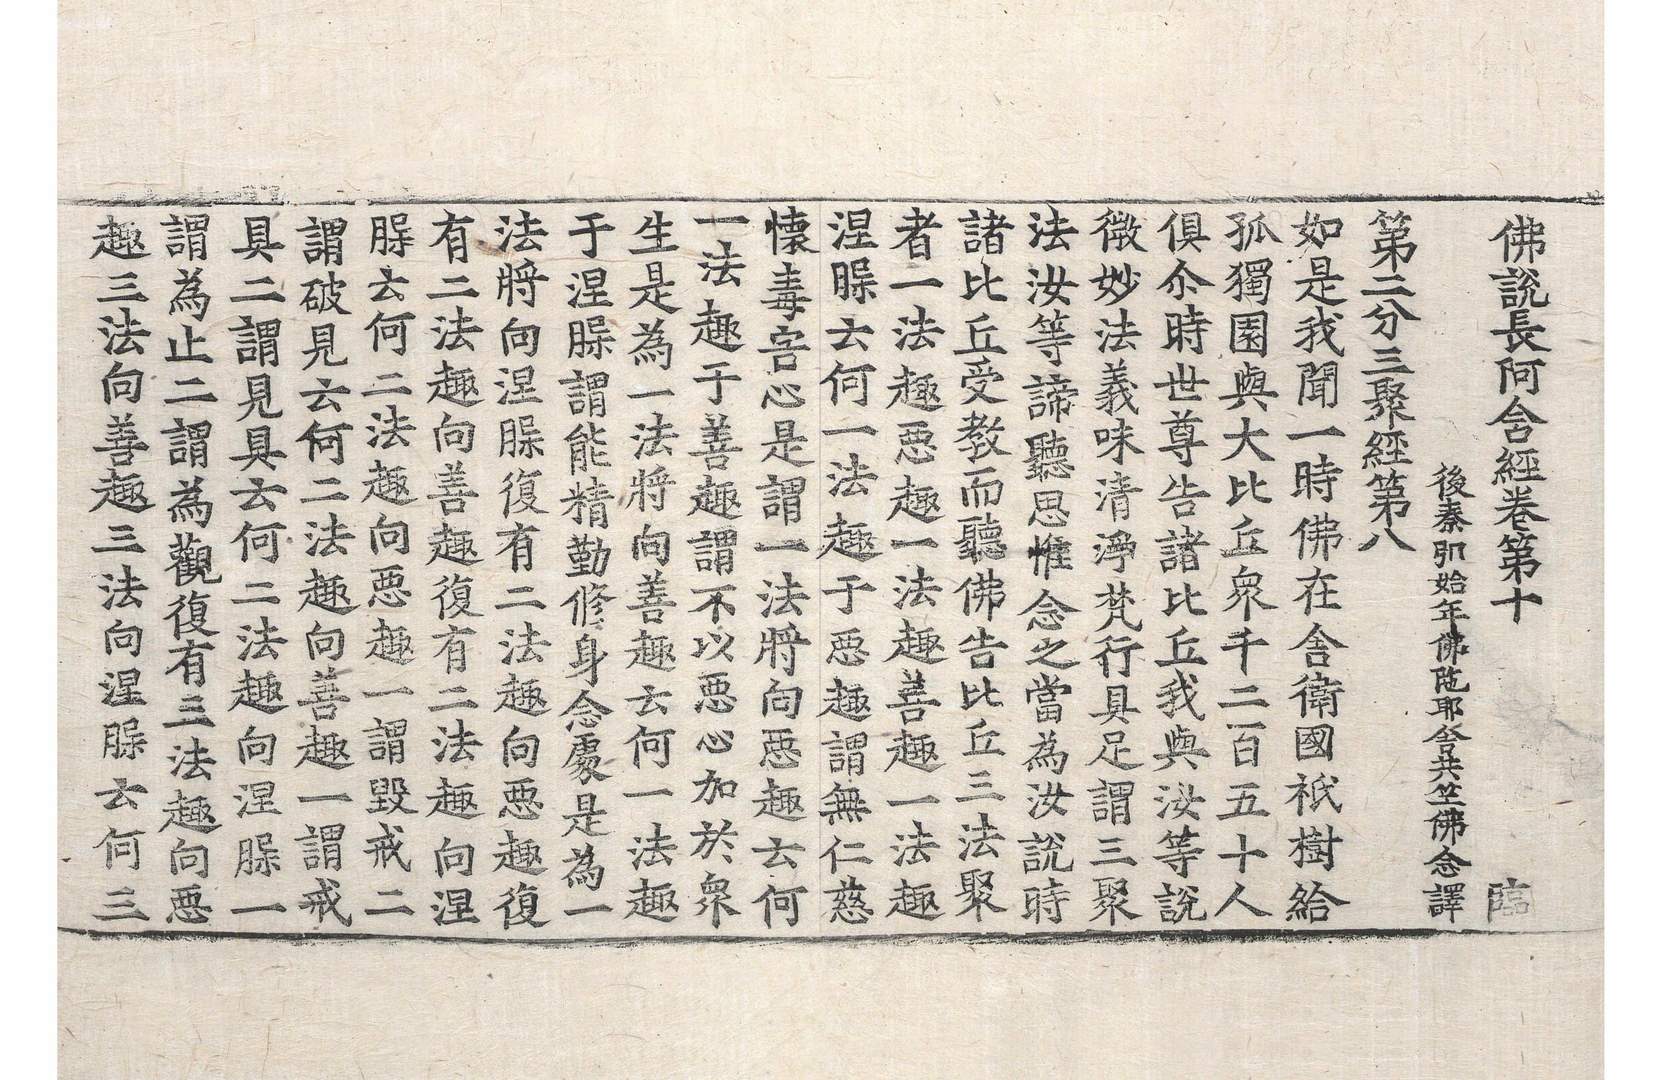 佛說長阿含經卷第十 臨
後秦弘始年佛陁耶舍共竺佛念譯
第二分三聚經第八
如是我聞一時佛在舍衛國祇樹給
孤獨園與大比丘衆千二百五十人
俱尒時世尊告諸比丘我與汝等說
微妙法義味清淨梵行具足謂三聚
法汝等諦聽思惟念之當為汝說時
諸比丘受教而聽佛告比丘三法聚
者一法趣惡趣一法趣善趣一法趣
涅槃云何一法趣于惡趣謂無仁慈
懷毒害心是謂一法將向惡趣云何
一法趣于善趣謂不以惡心加於衆
生是為一法將向善趣云何一法趣
于涅槃謂能精勤修身念處是為一
法將向涅槃復有二法趣向惡趣復
有二法趣向善趣復有二法趣向涅
槃云何二法趣向惡趣一謂毀戒二
謂破見云何二法趣向善趣一謂戒
具二謂見具云何二法趣向涅槃一
謂為止二謂為觀復有三法趣向惡
趣三法向善趣三法向涅槃云何三